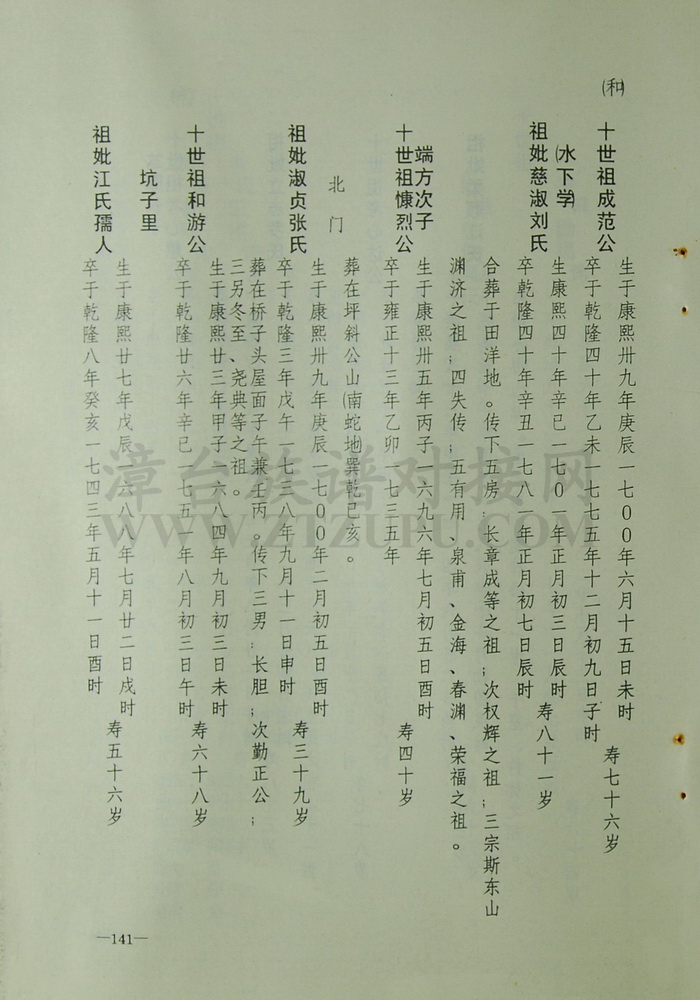 (和)
十世祖成范公
生于康熙卅九年庚辰一七00年六月十五日未时
卒于乾隆四十年乙未一七七五年十二月初九日子时
寿七十六岁
(水下学)
祖妣慈淑刘氏
生康熙四十年辛巳一七0一年正月初三日辰时
卒乾隆四十年辛丑一七八一年正月初七日辰时
寿八十一岁
合葬于田洋地。传下五房:长章成等之祖;次权辉之祖;三宗斯东山
渊济之祖;四失传;五有用、泉甫、金海、春渊、荣福之祖。
端方次子
十世祖慷烈公
生于康熙卅五年丙子一六九六年七月初五日酉时
卒于雍正十三年乙卯一七三五年
寿四十岁
葬在坪斜公山(南蛇地巽乾巳亥。
北门
祖妣淑贞张氏
生于康熙卅九年庚辰一七00年二月初五日酉时
卒于乾隆三年戊午一七三八年九月十一日申时
寿三十九岁
葬在桥子头屋面子午兼壬丙。传下三男:长胆;次勤正公;
三另冬至、尧典等之祖。
十世祖和游公
生于康熙廿三年甲子一六八四年九月初三日未时
卒于乾隆廿六年辛巳一七五一年八月初三日午时
寿六十八岁
坑子里
祖妣江氏孺人
生于康熙廿七年戊辰一六八八年七月廿二日戌时
卒于乾隆八年癸亥一七四三年五月十一日酉时
寿五十六岁
—141—
漳台族谱对接网
www.ztzupu.com